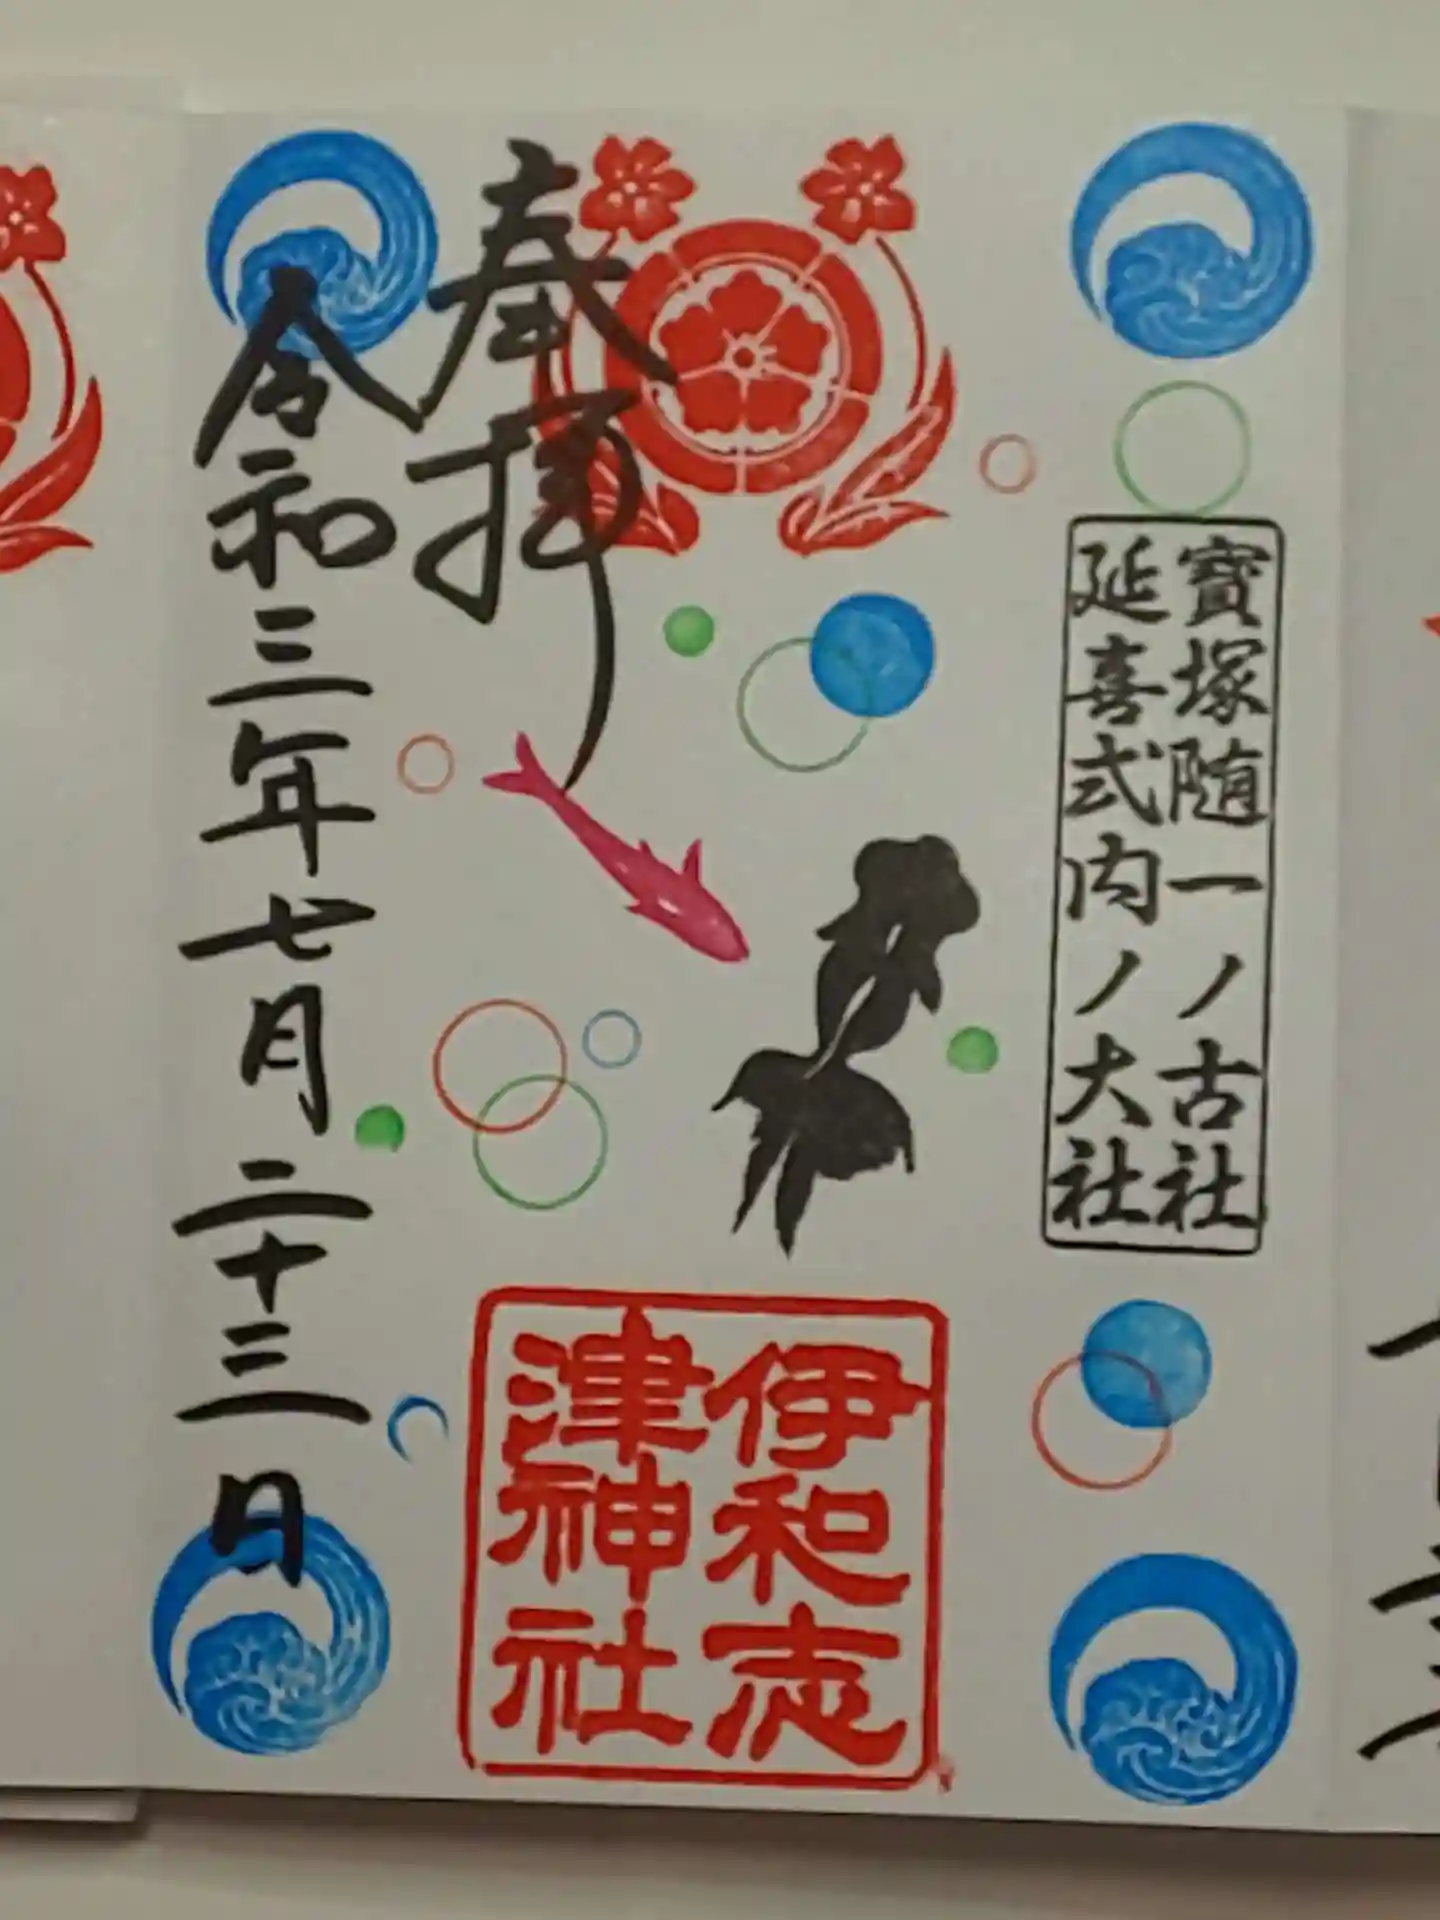 寶塚随一ノ古社
延喜式内ノ大社
奉拝
令和三年七月二十三日
伊和志
津神社